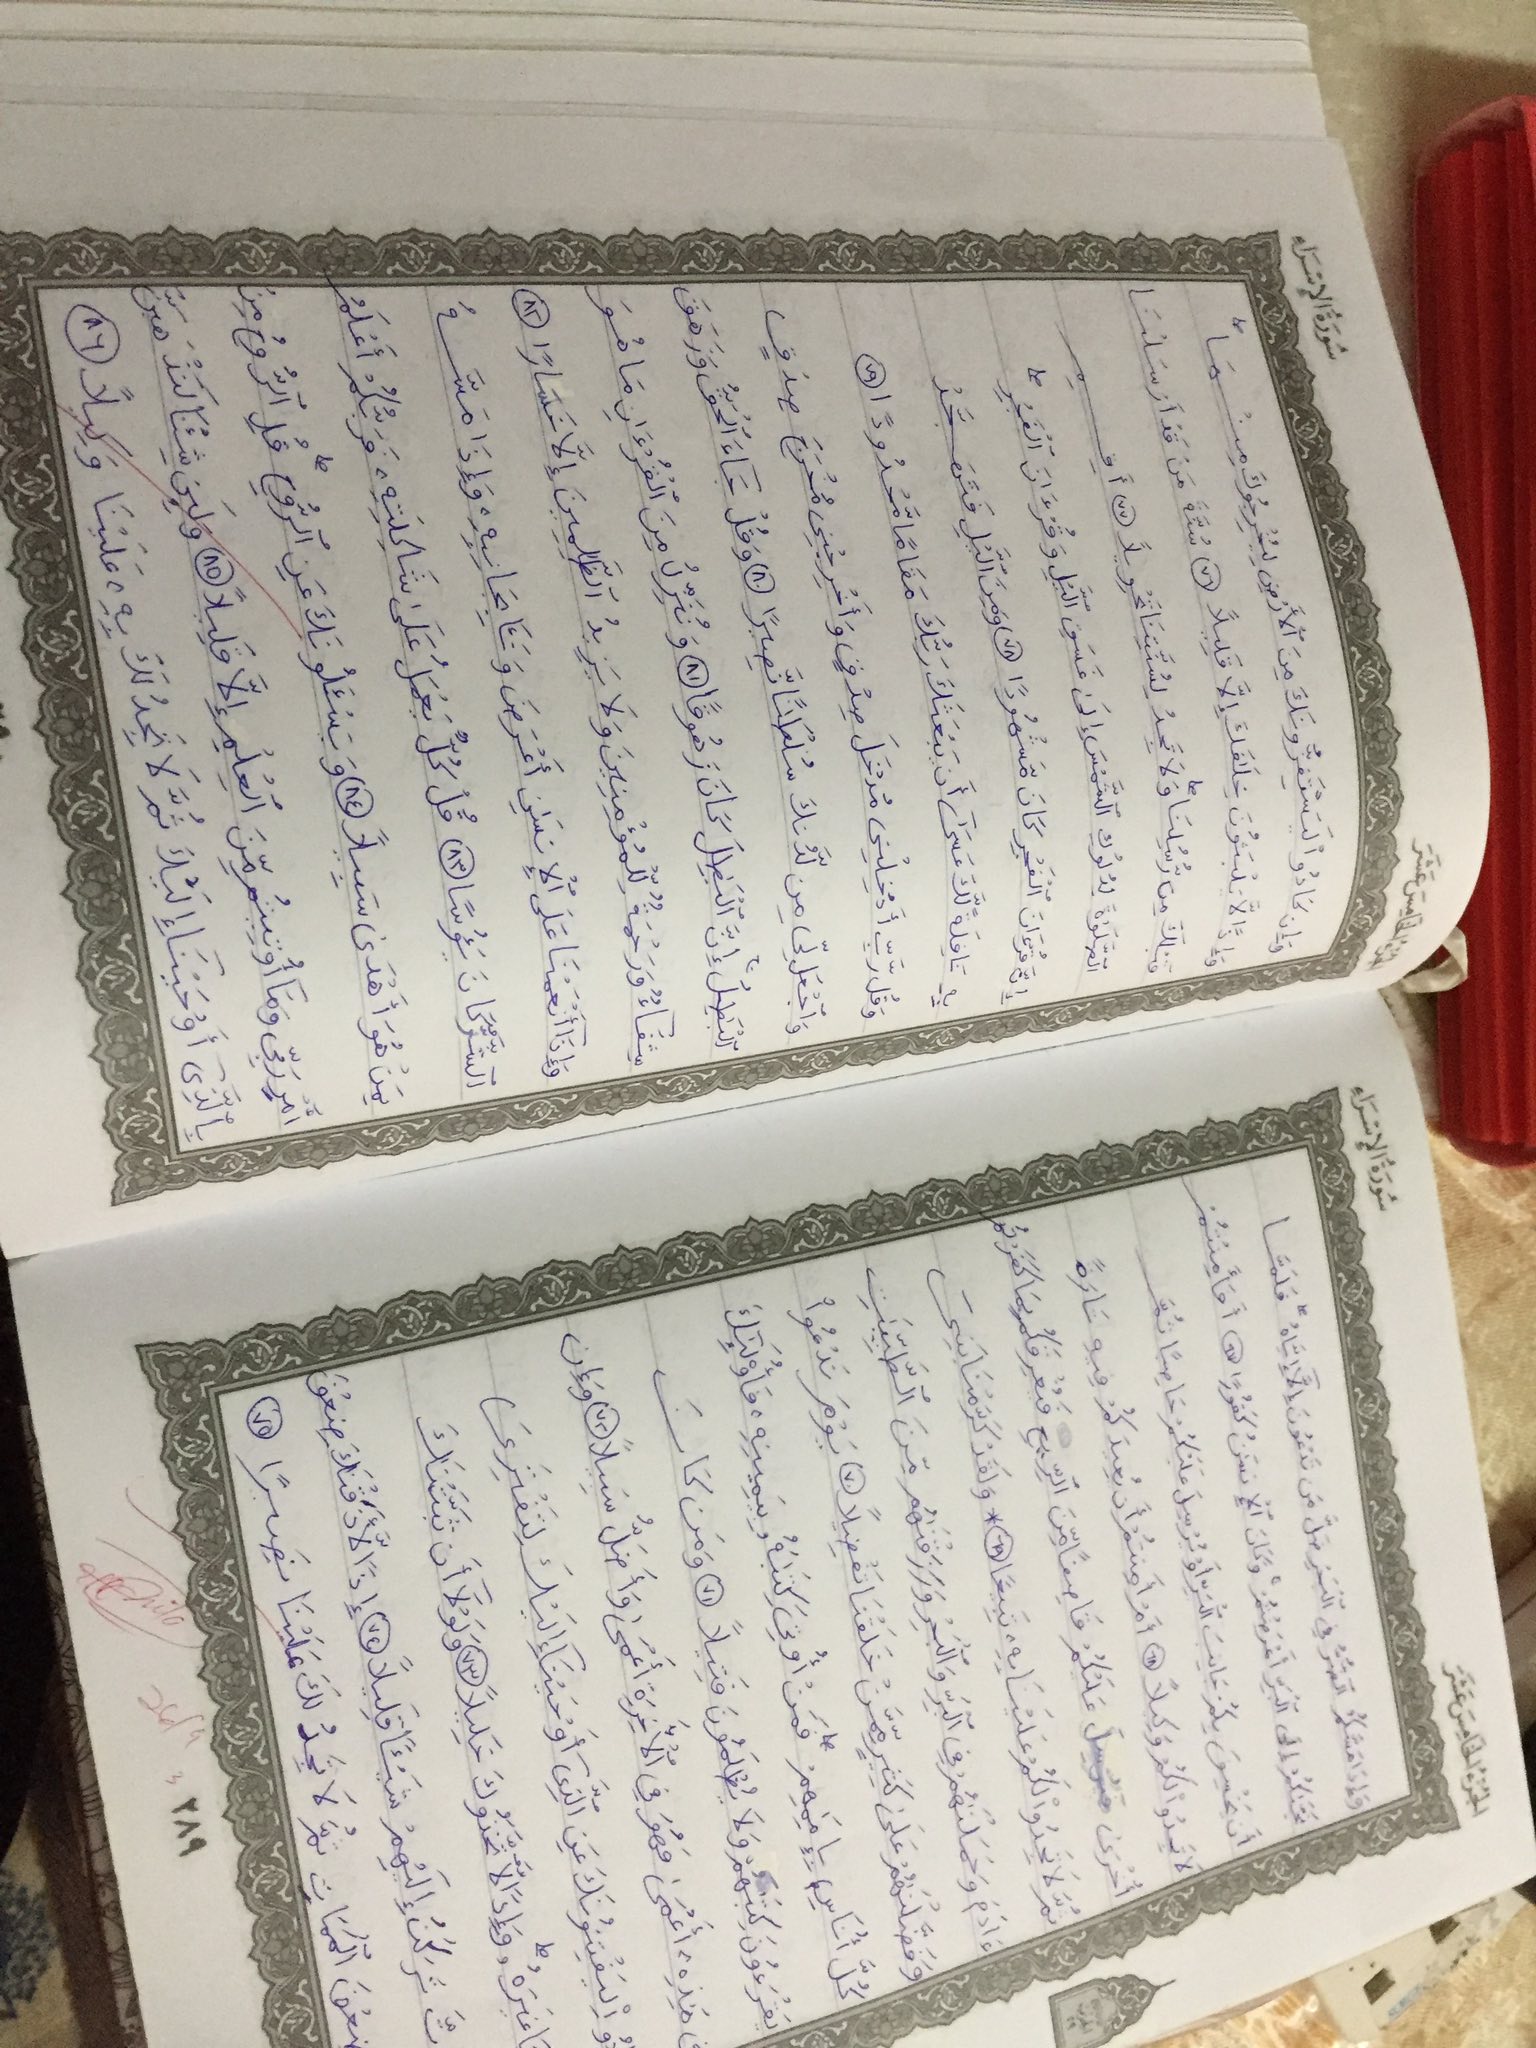 سُورَةُ الإِسْرَاءِ
الجُزْءُ الخَامِسَ عَشَرَ
وَإِذَا مَسَّكُمُ الضُّرُّ فِي الْبَحْرِ ضَلَّ مَن تَدْعُونَ إِلَّآ إِيَّاهُ ۖ فَلَمَّا
نَجَّىٰكُمْ إِلَى الْبَرِّ أَعْرَضْتُمْ ۚ وَكَانَ الْإِنسَٰنُ كَفُورًا ٦٧ أَفَأَمِنتُمْ
أَن يَخْسِفَ بِكُمْ جَانِبَ الْبَرِّ أَوْ يُرْسِلَ عَلَيْكُمْ حَاصِبًا ثُمَّ
لَا تَجِدُوا۟ لَكُمْ وَكِيلًا ٦٨ أَمْ أَمِنتُمْ أَن يُعِيدَكُمْ فِيهِ تَارَةً
أُخْرَىٰ فَيُرْسِلَ عَلَيْكُمْ قَاصِفًا مِّنَ الرِّيحِ فَيُغْرِقَكُم بِمَا كَفَرْتُمْ
ثُمَّ لَا تَجِدُوا۟ لَكُمْ عَلَيْنَا بِهِۦ تَبِيعًا ٦٩ * وَلَقَدْ كَرَّمْنَا بَنِيٓ
ءَادَمَ وَحَمَلْنَٰهُمْ فِي الْبَرِّ وَالْبَحْرِ وَرَزَقْنَٰهُم مِّنَ الطَّيِّبَٰتِ
وَفَضَّلْنَٰهُمْ عَلَىٰ كَثِيرٍ مِّمَّنْ خَلَقْنَا تَفْضِيلًا ٧٠ يَوْمَ نَدْعُوا۟
كُلَّ أُنَاسٍ بِإِمَٰمِهِمْ ۖ فَمَنْ أُوتِيَ كِتَٰبَهُۥ بِيَمِينِهِۦ فَأُو۟لَٰٓئِكَ
يَقْرَءُونَ كِتَٰبَهُمْ وَلَا يُظْلَمُونَ فَتِيلًا ٧١ وَمَن كَانَ
هَٰذِهِۦٓ أَعْمَىٰ فَهُوَ فِي الْأَخِرَةِ أَعْمَىٰ وَأَضَلُّ سَبِيلًا ٧٢ وَإِن
لَيَفْتِنُونَكَ عَنِ الَّذِيٓ أَوْحَيْنَآ إِلَيْكَ لِتَفْتَرِيَ
غَيْرَهُۥ ۖ وَإِذًا لَّاتَّخَذُوكَ خَلِيلًا ٧٣ وَلَوْلَآ أَن ثَبَّتْنَٰكَ
تَرْكَنُ إِلَيْهِمْ شَيْـًٔا قَلِيلًا ٧٤ إِذًا لَّأَذَقْنَٰكَ ضِعْفَ
ضِعْفَ الْمَمَاتِ ثُمَّ لَا تَجِدُ لَكَ عَلَيْنَا نَصِيرًا ٧٥
٢٨٩
سُورَةُ الإِسْرَاءِ
الجُزْءُ الخَامِسَ عَشَرَ
وَإِن كَادُوا۟ لَيَسْتَفِزُّونَكَ مِنَ الْأَرْضِ لِيُخْرِجُوكَ مِنْهَا ۖ
وَإِذًا لَّا يَلْبَثُونَ خِلَٰفَكَ إِلَّا قَلِيلًا ٧٦ سُنَّةَ مَن قَدْ أَرْسَلْنَا
قَبْلَكَ مِن رُّسُلِنَا ۖ وَلَا تَجِدُ لِسُنَّتِنَا تَحْوِيلًا ٧٧ أَقِمِ
الصَّلَوٰةَ لِدُلُوكِ الشَّمْسِ إِلَىٰ غَسَقِ الَّيْلِ وَقُرْءَانَ الْفَجْرِ ۖ
إِنَّ قُرْءَانَ الْفَجْرِ كَانَ مَشْهُودًا ٧٨ وَمِنَ الَّيْلِ فَتَهَجَّدْ
بِهِۦ نَافِلَةً لَّكَ عَسَىٰٓ أَن يَبْعَثَكَ رَبُّكَ مَقَامًا مَّحْمُودًا ٧٩
وَقُل رَّبِّ أَدْخِلْنِي مُدْخَلَ صِدْقٍ وَأَخْرِجْنِي مُخْرَجَ صِدْقٍ
وَاجْعَل لِّي مِن لَّدُنكَ سُلْطَٰنًا نَّصِيرًا ٨٠ وَقُلْ جَآءَ الْحَقُّ وَزَهَقَ
الْبَٰطِلُ ۚ إِنَّ الْبَٰطِلَ كَانَ زَهُوقًا ٨١ وَنُنَزِّلُ مِنَ الْقُرْءَانِ مَا هُوَ
شِفَآءٌ وَرَحْمَةٌ لِّلْمُؤْمِنِينَ وَلَا يَزِيدُ الظَّٰلِمِينَ إِلَّا خَسَارًا ٨٢
وَإِذَآ أَنْعَمْنَا عَلَى الْإِنسَٰنِ أَعْرَضَ وَنَـَٔا بِجَانِبِهِۦ وَإِذَا مَسَّهُ
الشَّرُّ كَانَ يَـُٔوسًا ٨٣ قُلْ كُلٌّ يَعْمَلُ عَلَىٰ شَاكِلَتِهِۦ فَرَبُّكُمْ أَعْلَمُ
بِمَنْ هُوَ أَهْدَىٰ سَبِيلًا ٨٤ وَيَسْـَٔلُونَكَ عَنِ الرُّوحِ ۖ قُلِ الرُّوحُ مِنْ
أَمْرِ رَبِّي وَمَآ أُوتِيتُم مِّنَ الْعِلْمِ إِلَّا قَلِيلًا ٨٥ وَلَئِن شِئْنَا لَنَذْهَبَنَّ
بِالَّذِيٓ أَوْحَيْنَآ إِلَيْكَ ثُمَّ لَا تَجِدُ لَكَ بِهِۦ عَلَيْنَا وَكِيلًا ٨٦